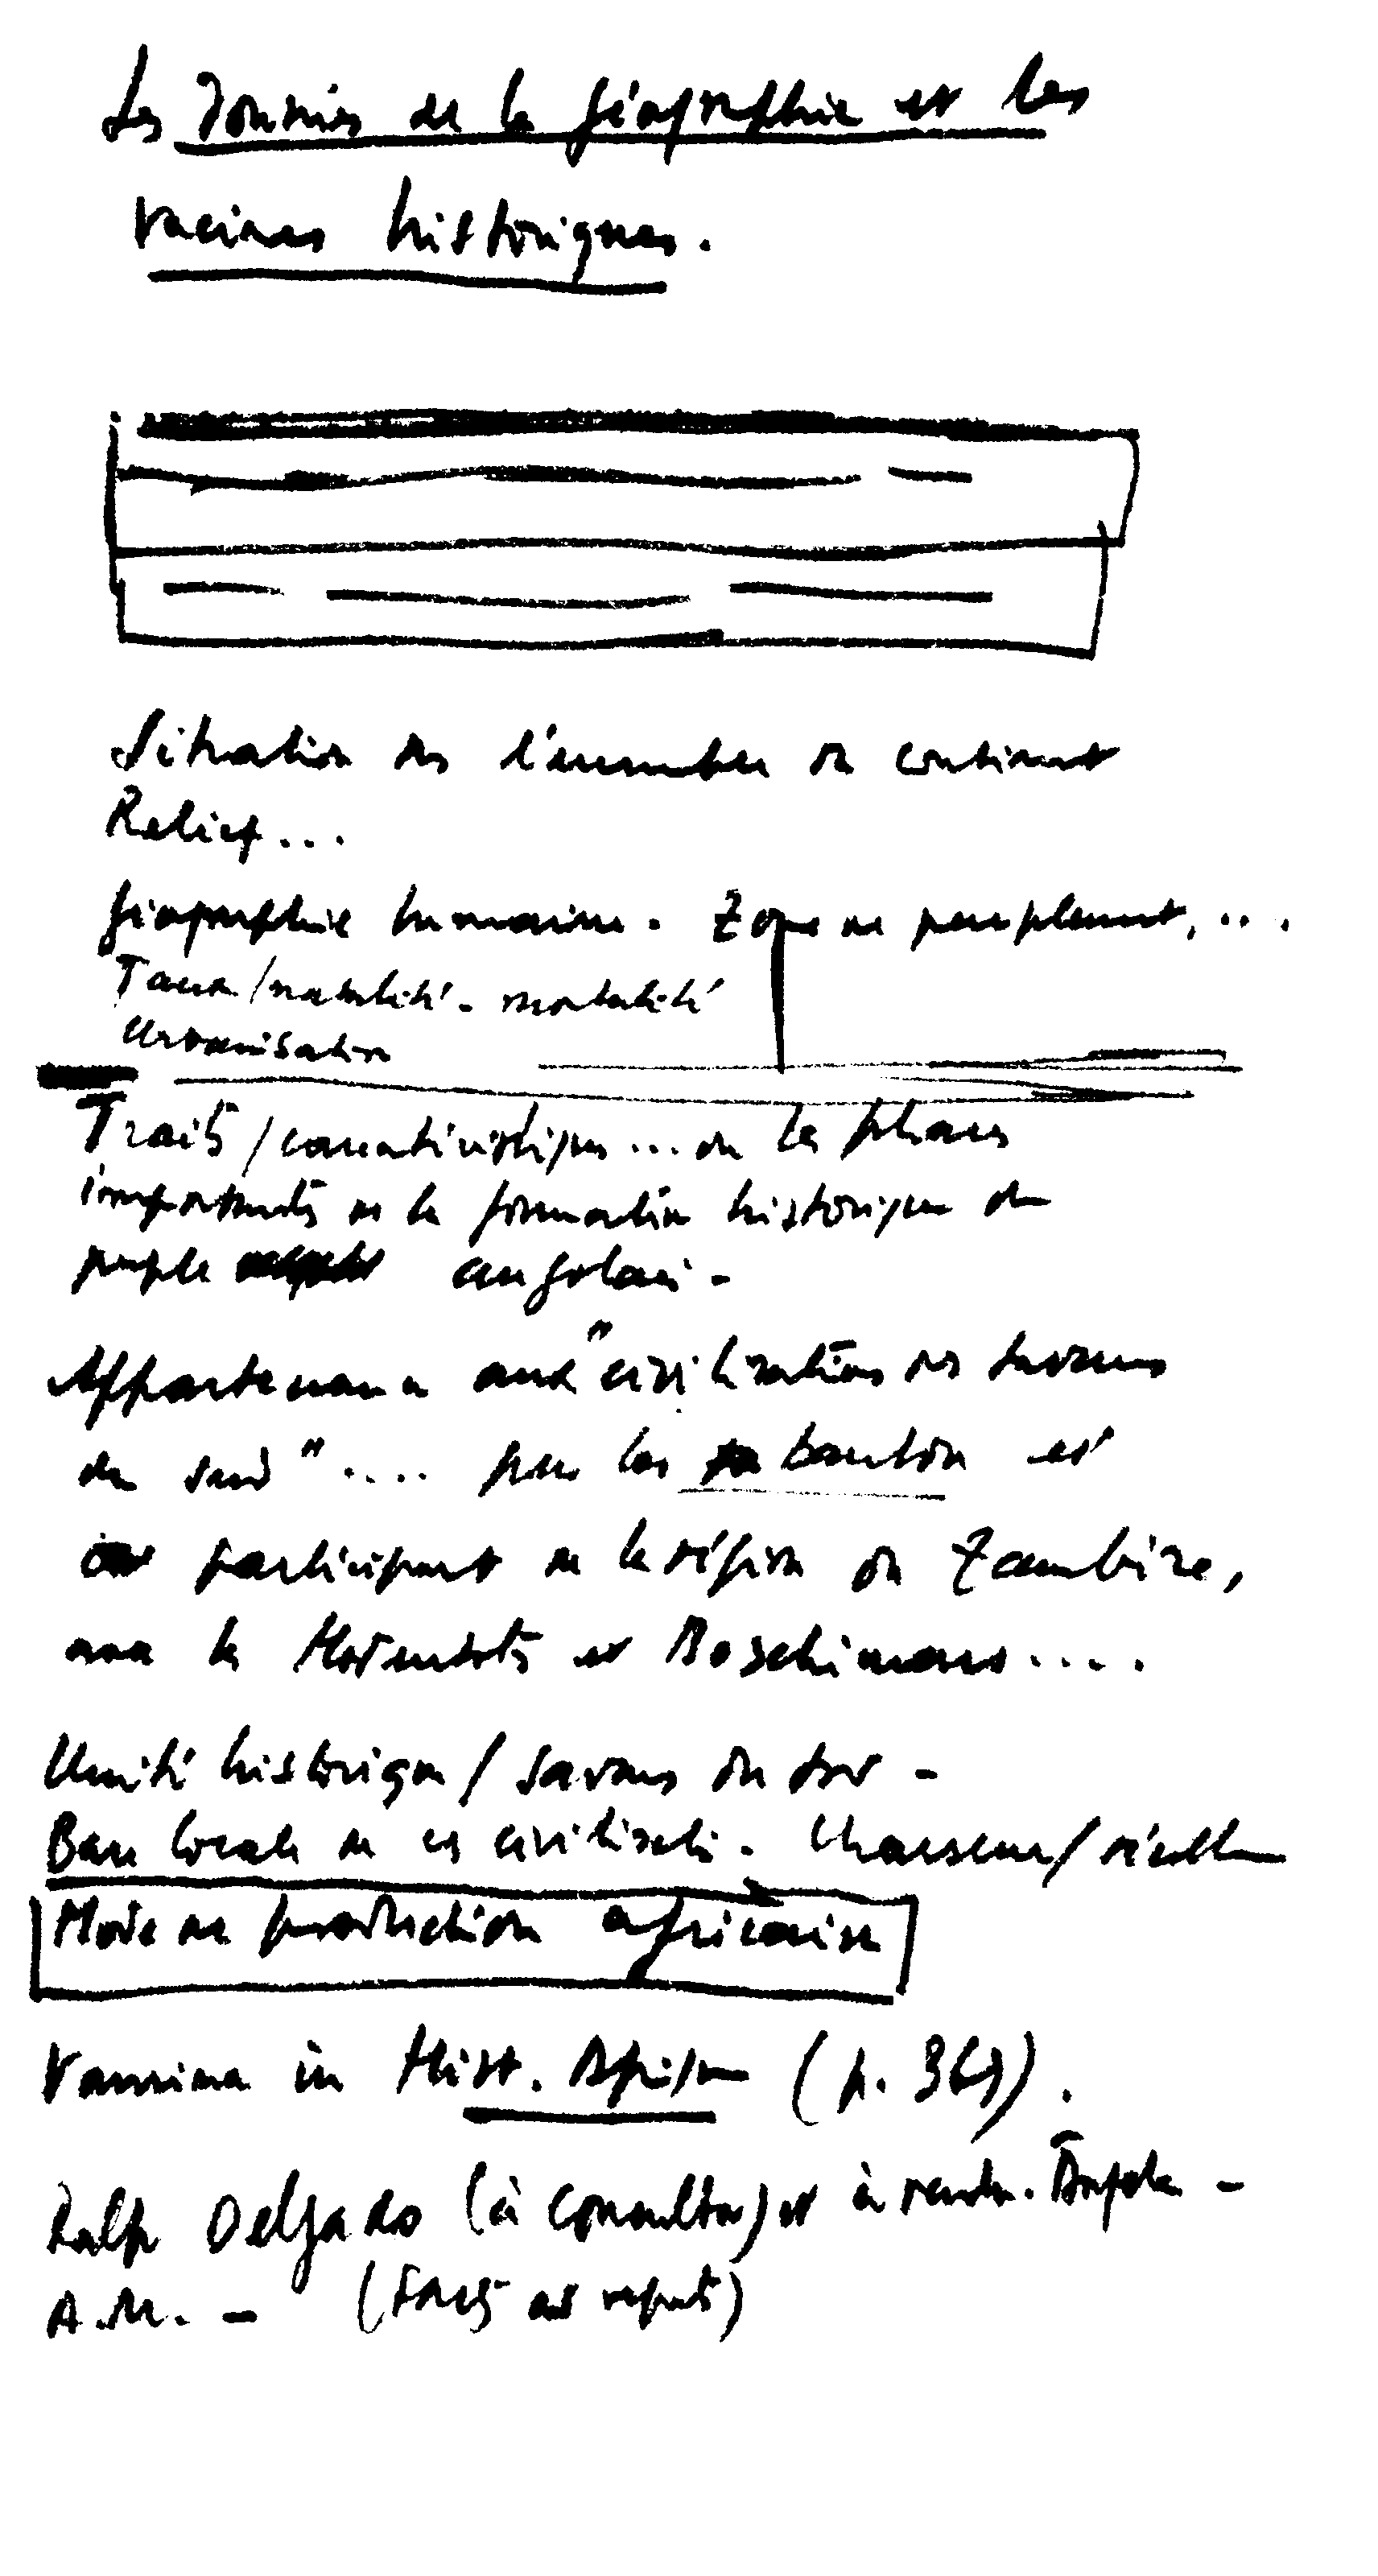 Les données de la géographie et les
racines historiques.
Situation ds l'ensemble du continent
Relief...
géographie humaine. Zone de peuplement, ...
Taux/natalité - mortalité
Urbanisation
Traits/caractéristiques... ou les phases
importants de la formation historique du
peuple angolais -
Appartenance aux "civilisations des savanes
du sud".... par les bantou et
participant de la région du Zambèze,
avec les Hottentots et Boschimans....
Unité historique/savanes du sud -
Base locale de ces civilisati. Chasseur/récolte
Mode de production africaine
Vansina in Hist. Afrique (p. 369).
Ralph Delgado (à consulter) et à rendre. Angola -
A.M. -